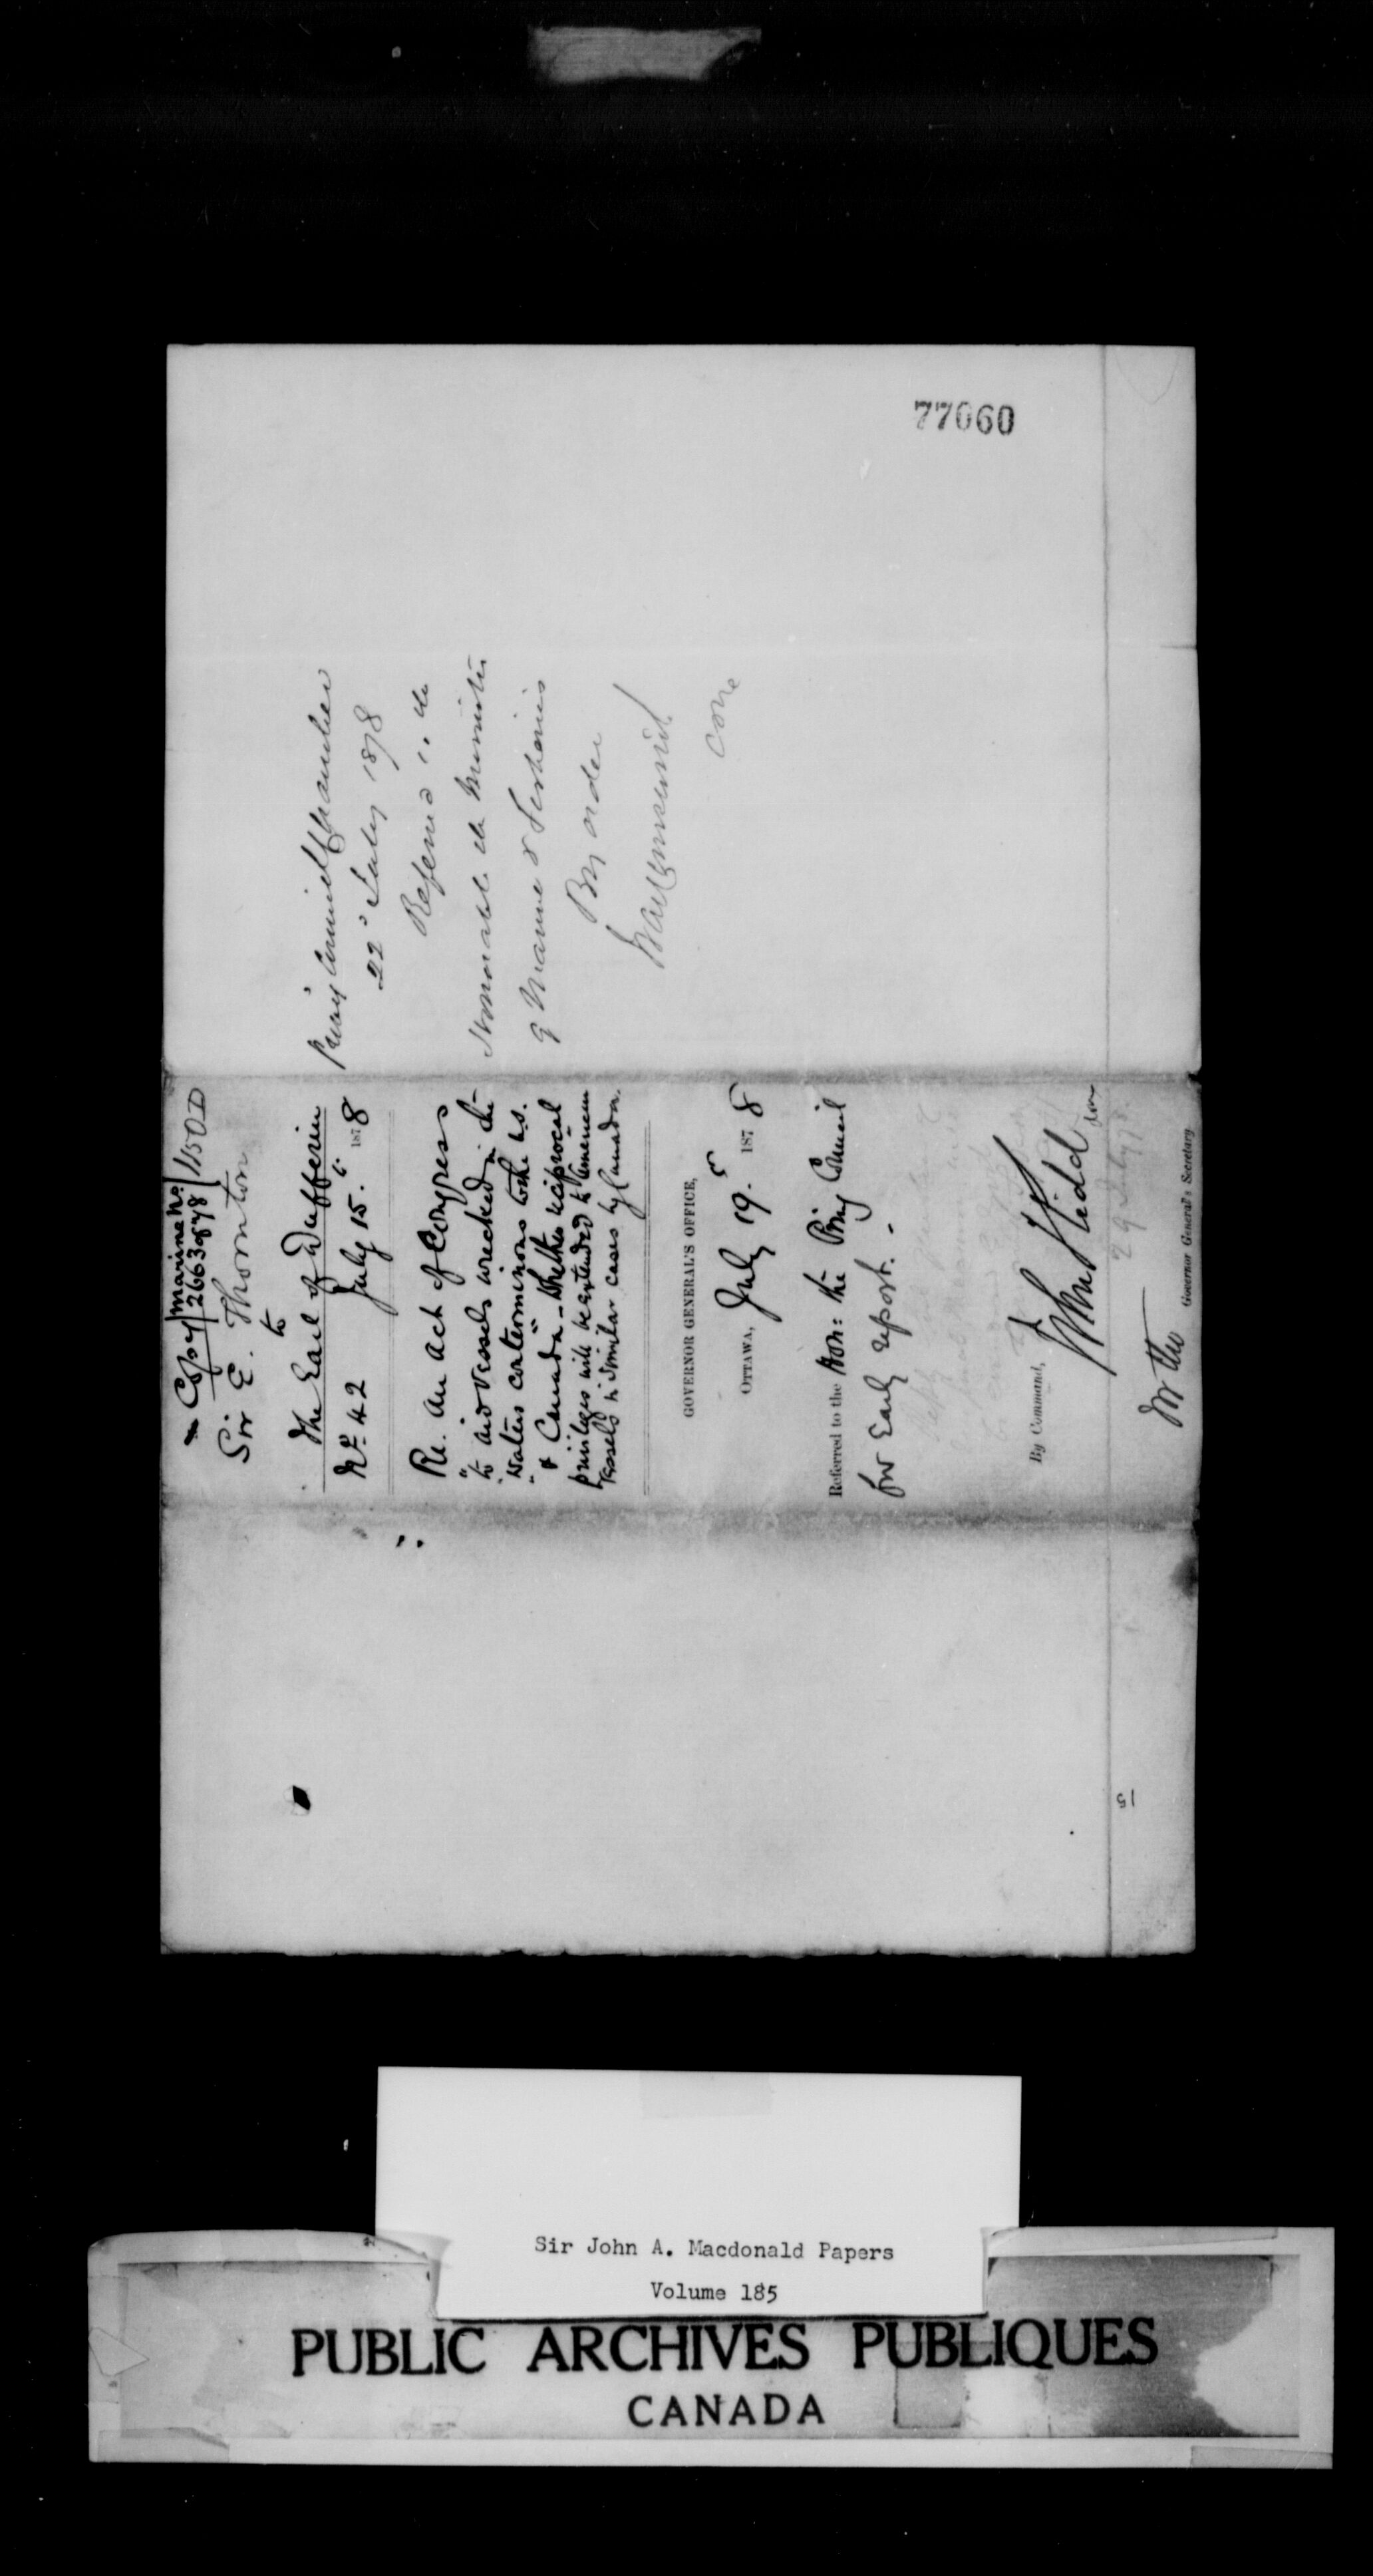 77060
Copy Marine No. 1150D
2663 of 78
Sir E. Thornton
to
The Earl of Dufferin
No. 42 July 15. 1878
Re. An Act of Congress
"to aid vessels wrecked in the
"waters conterminous to the U.S.
"& Canada" – Whether reciprocal
privileges will be extended to American
vessels in similar cases by Canada.
GOVERNOR GENERAL'S OFFICE,
OTTAWA, July 19. 1878
Referred to the Hon: the Privy Council
for Early report. –
By Command,
Governor General's Secretary
29 July
Privy Council Chamber
22 July 1878
Referred to the
Honorable the Minister
of Marine & Fisheries
By order
15
Sir John A. Macdonald Papers
Volume 185
PUBLIC ARCHIVES PUBLIQUES
CANADA